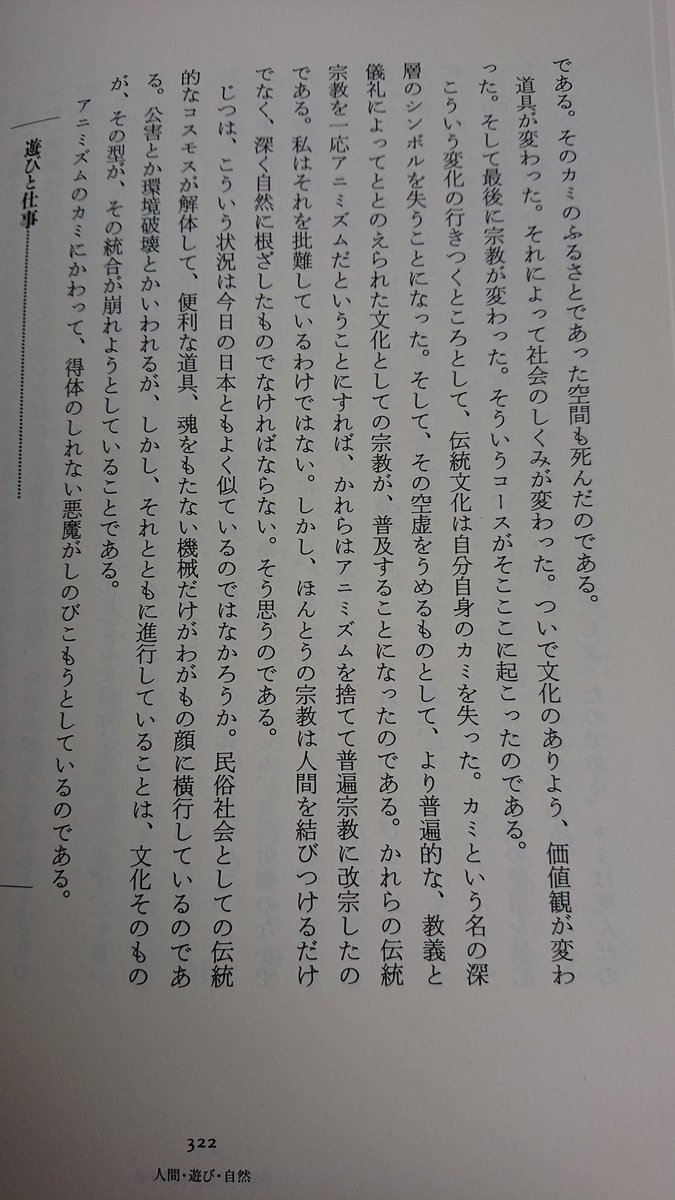 である。そのカミのふるさとであった空間も死んだのである。
道具が変わった。それによって社会のしくみが変わった。ついで文化のありよう、価値観が変わ
った。そして最後に宗教が変わった。そういうコースがそこここに起こったのである。
こういう変化の行きつくところとして、伝統文化は自分自身のカミを失った。カミという名の深
層のシンボルを失うことになった。そして、その空虚をうめるものとして、より普遍的な、教義と
儀礼によってととのえられた文化としての宗教が、普及することになったのである。かれらの伝統
宗教を一応アニミズムだということにすれば、かれらはアニミズムを捨てて普遍宗教に改宗したの
である。私はそれを批難しているわけではない。しかし、ほんとうの宗教は人間を結びつけるだけ
でなく、深く自然に根ざしたものでなければならない。そう思うのである。
じつは、こういう状況は今日の日本ともよく似ているのではなかろうか。民俗社会としての伝統
的なコスモスが解体して、便利な道具、魂をもたない機械だけがわがもの顔に横行しているのであ
る。公害とか環境破壊とかいわれるが、しかし、それとともに進行していることは、文化そのもの
が、その型が、その統合が崩れようとしていることである。
アニミズムのカミにかわって、得体のしれない悪魔がしのびこもうとしているのである。
遊びと仕事
322
人間・遊び・自然